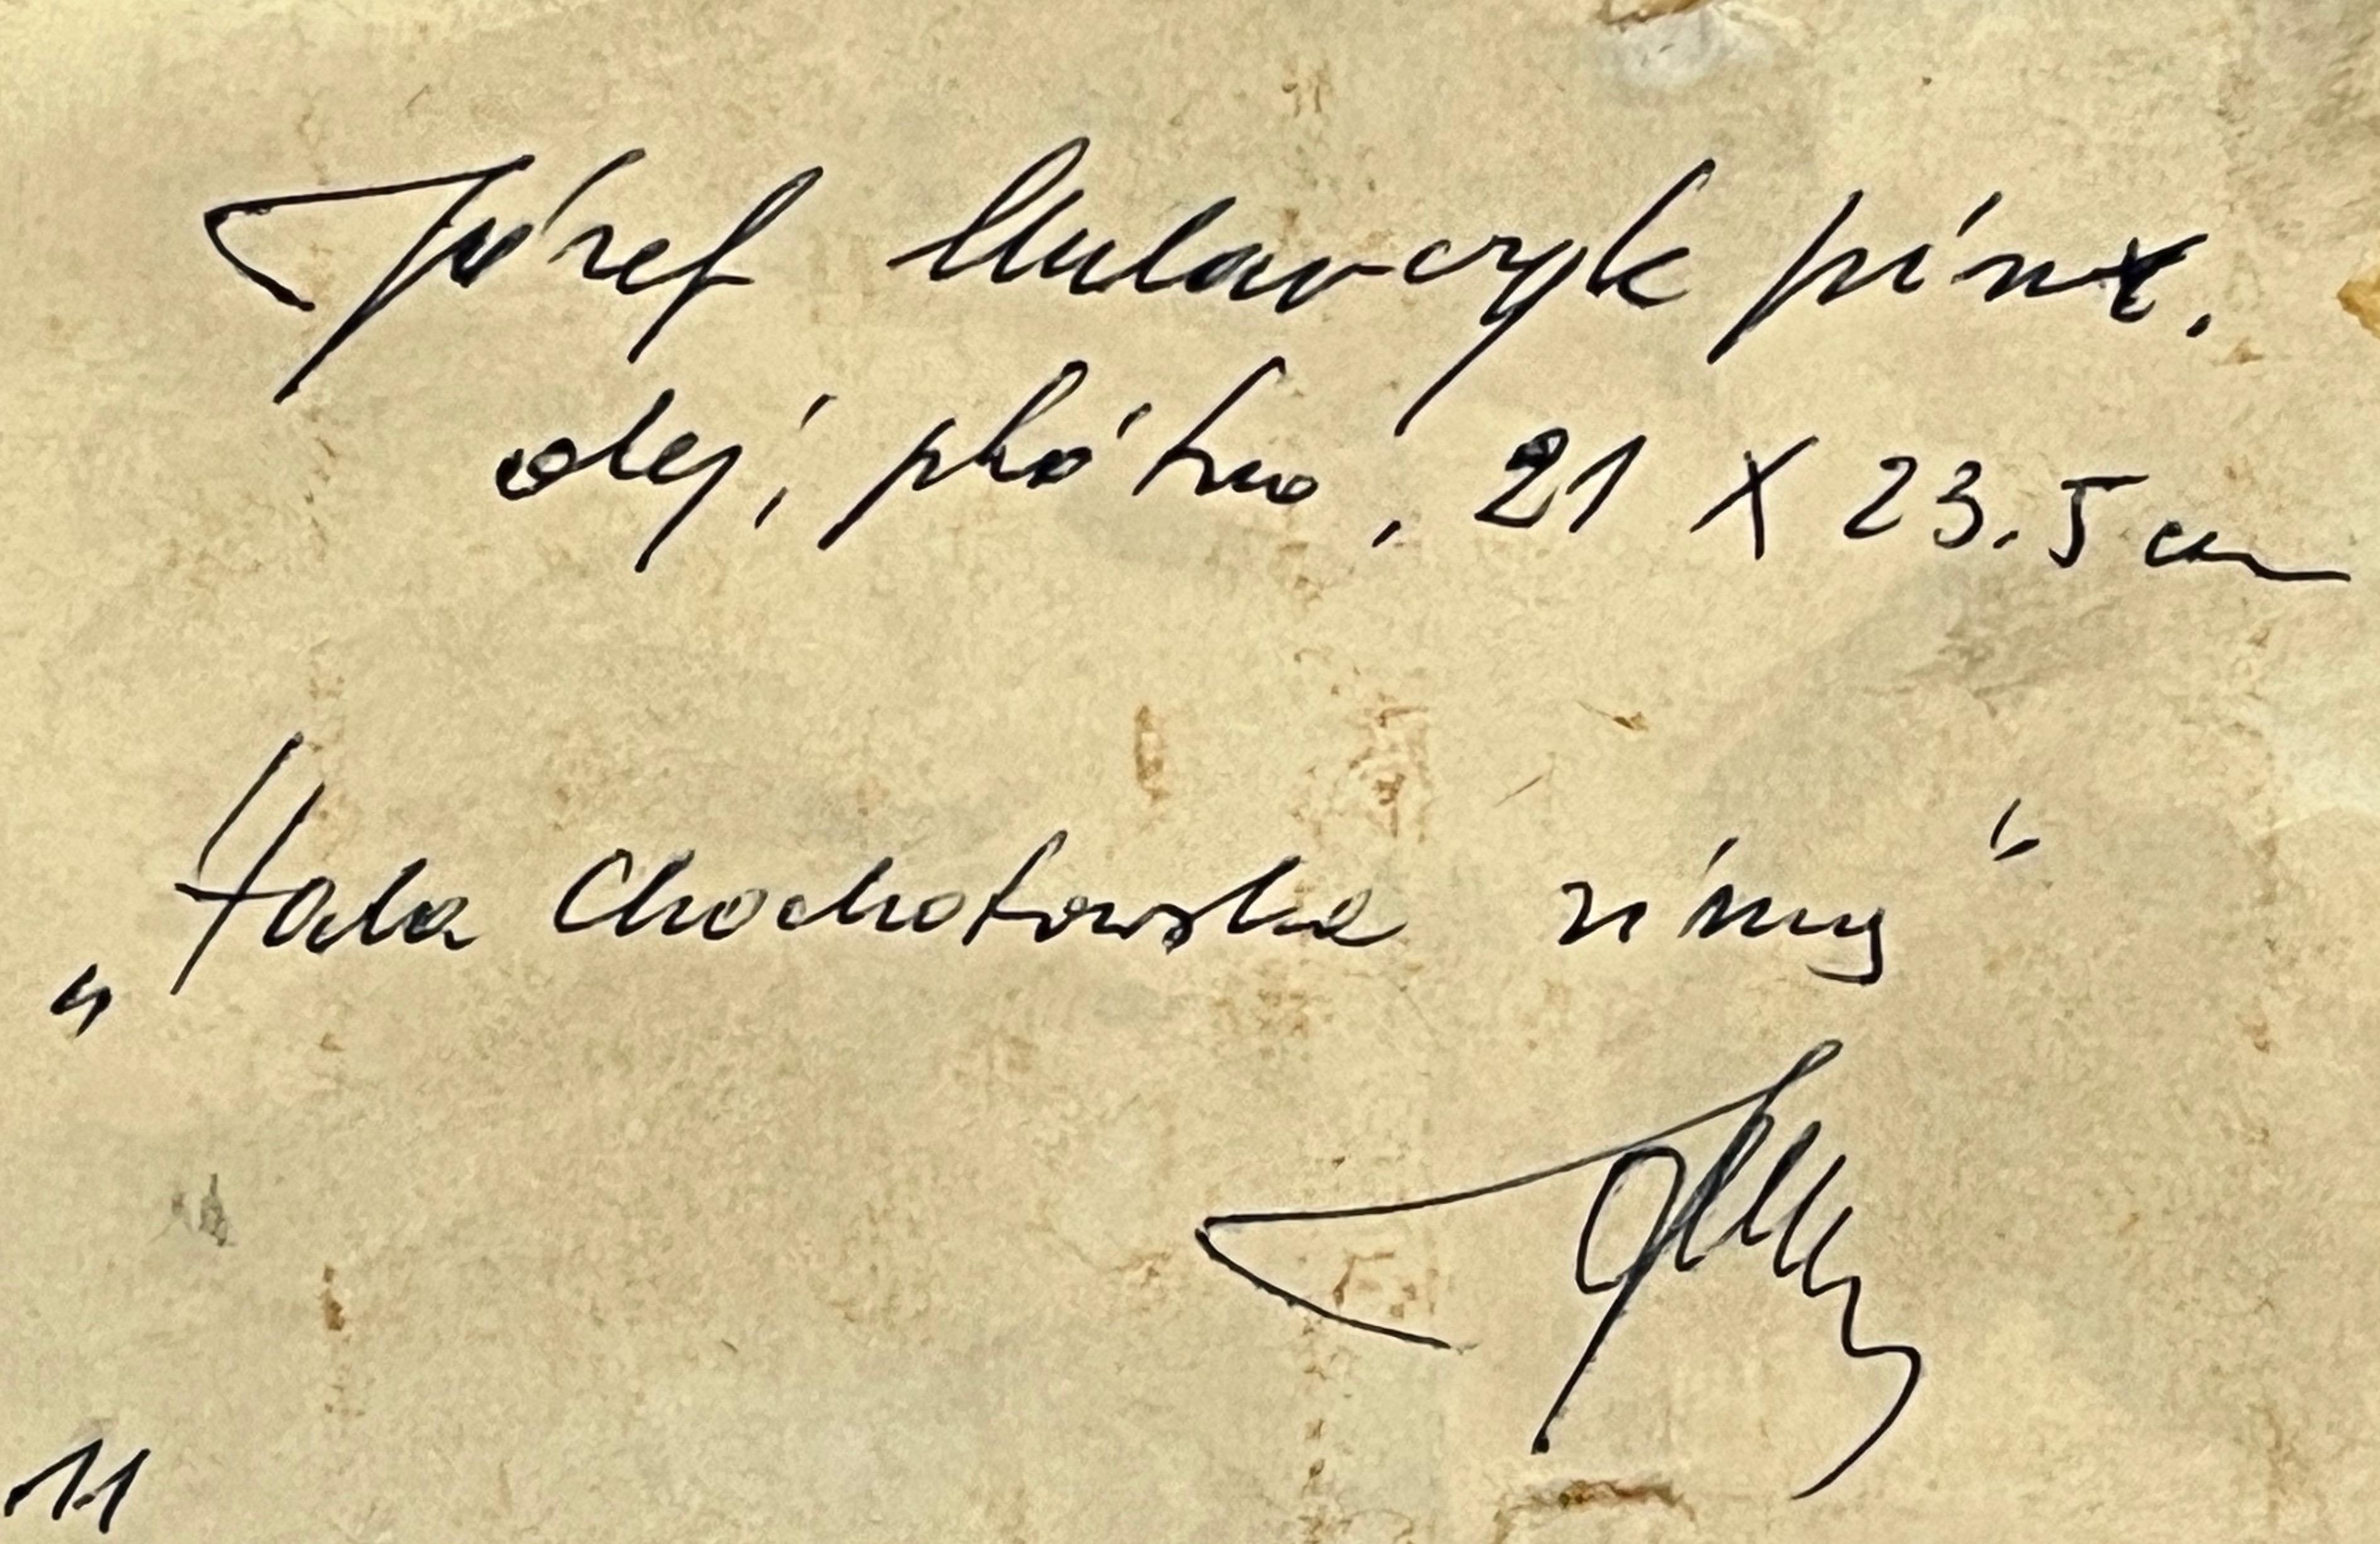 Józef Mularczyk pinx.
olej, płótno, 21 X 23.5 cm
„Hala Chochołowska zimą"
11